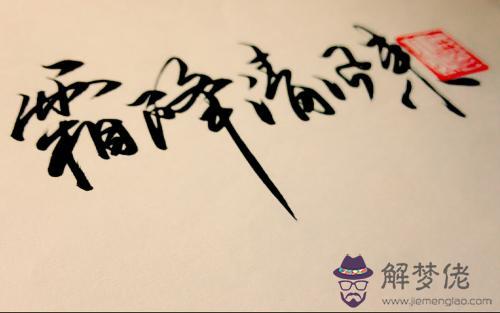 霜降清风
解梦佬
www.jiemenglao.com